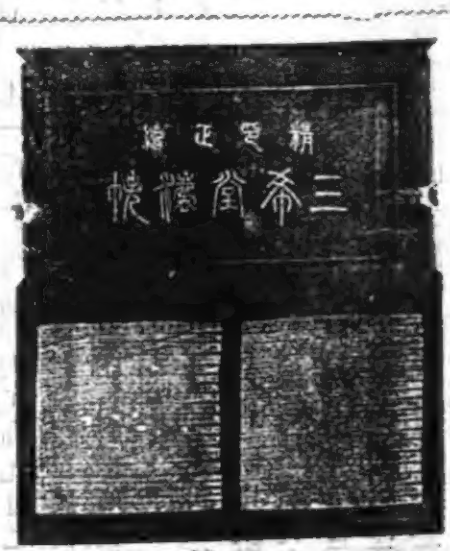 精印正續
三希堂法帖